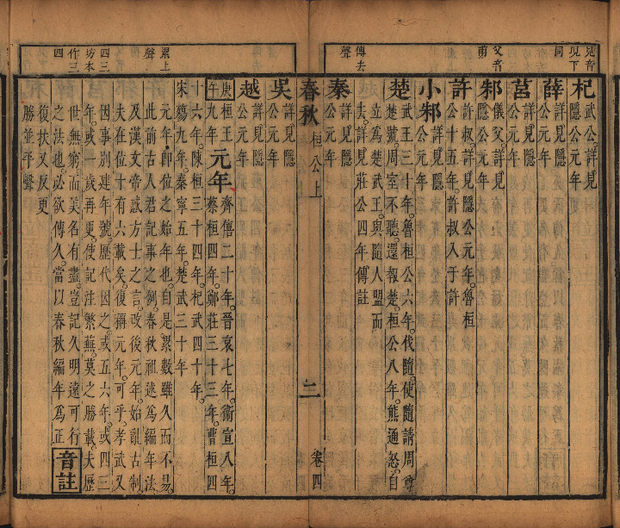 見音
現下
同
父音
甫
傳去
聲
杞武公。詳見
隱公元年
薛詳見隱
公元年
莒詳見隱
公元年
邾儀父詳見
隱公元年
許許叔。詳見隱公元年。魯桓
公十五年。許叔入于許
小邾詳見隱
公元年
楚武王三十年。魯桓公六年。伐隨。使隨請周尊
楚號。周室不聽。還報楚。桓公八年。熊通怒。自
立爲楚武王。與隨人盟而
去。詳見莊公四年傳註
秦詳見隱
公元年
春秋 桓公上 二 卷四
累上
聲
四三
坊本
作三
四
吳詳見隱
公元年
越詳見隱
公元年
庚午桓王九年元年齊僖二十年。晉哀七年。衛宣八年。
蔡桓四年。鄭莊三十三年。曹桓四
六年。陳桓三十四年。杞武四十年。
宋殤九年。秦寧五年。楚武三十年。
元年。即位之始年也。自是累數雖久而不易。
此前古人君記事之例。春秋祖述爲編年法。
及漢文帝惑方士之言。改後元年。始亂古制。
夫在位十有六載矣。復稱元年可乎。孝武又
因事别建年號。歷代因之。或五六年。或四三
年。或一歲再更。使記注繁蕪。莫之勝載。夫歷
世無窮。而美名有盡。豈記久明遠可行
之法也。必欲傳久。當以春秋編年爲正
音註
復扶又反。更
勝並平聲